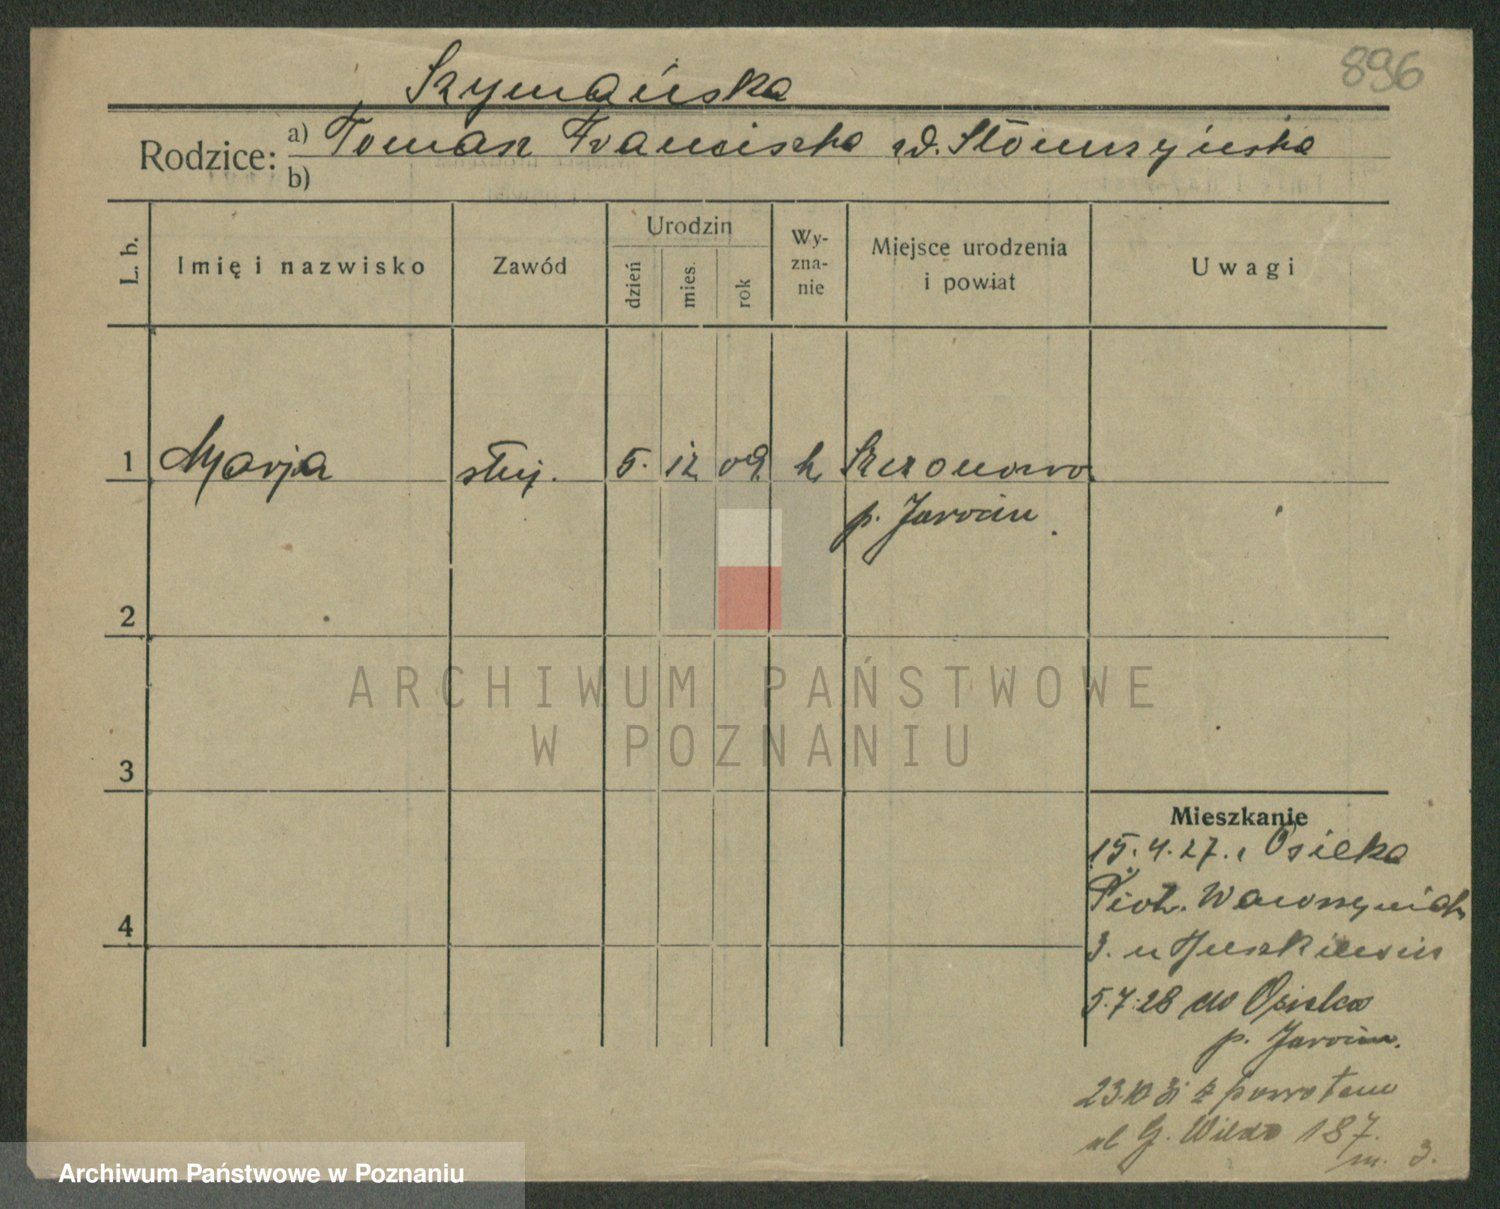 896
Szymańska
Rodzice: a) Tomasz Franciszka zd. Słomczyńska
b)
L. b.
Imię i nazwisko
Zawód
Urodzin
dzień
mies.
rok
Wy-
zna-
nie
Miejsce urodzenia
i powiat
Uwagi
1 Marja służ. 5. 12 09. k
p. Jarocin
2
ARCHIWUM PAŃSTWOWE
W POZNANIU
3
Mieszkanie
15.4.27. z Osieka
Piotr. Wawrzyniak
3. u
4
5.7.28 do Osieka
p. Jarocin.
23.10 31 z powrotem
ul G. Wilda 187.
m. 3.
Archiwum Państwowe w Poznaniu